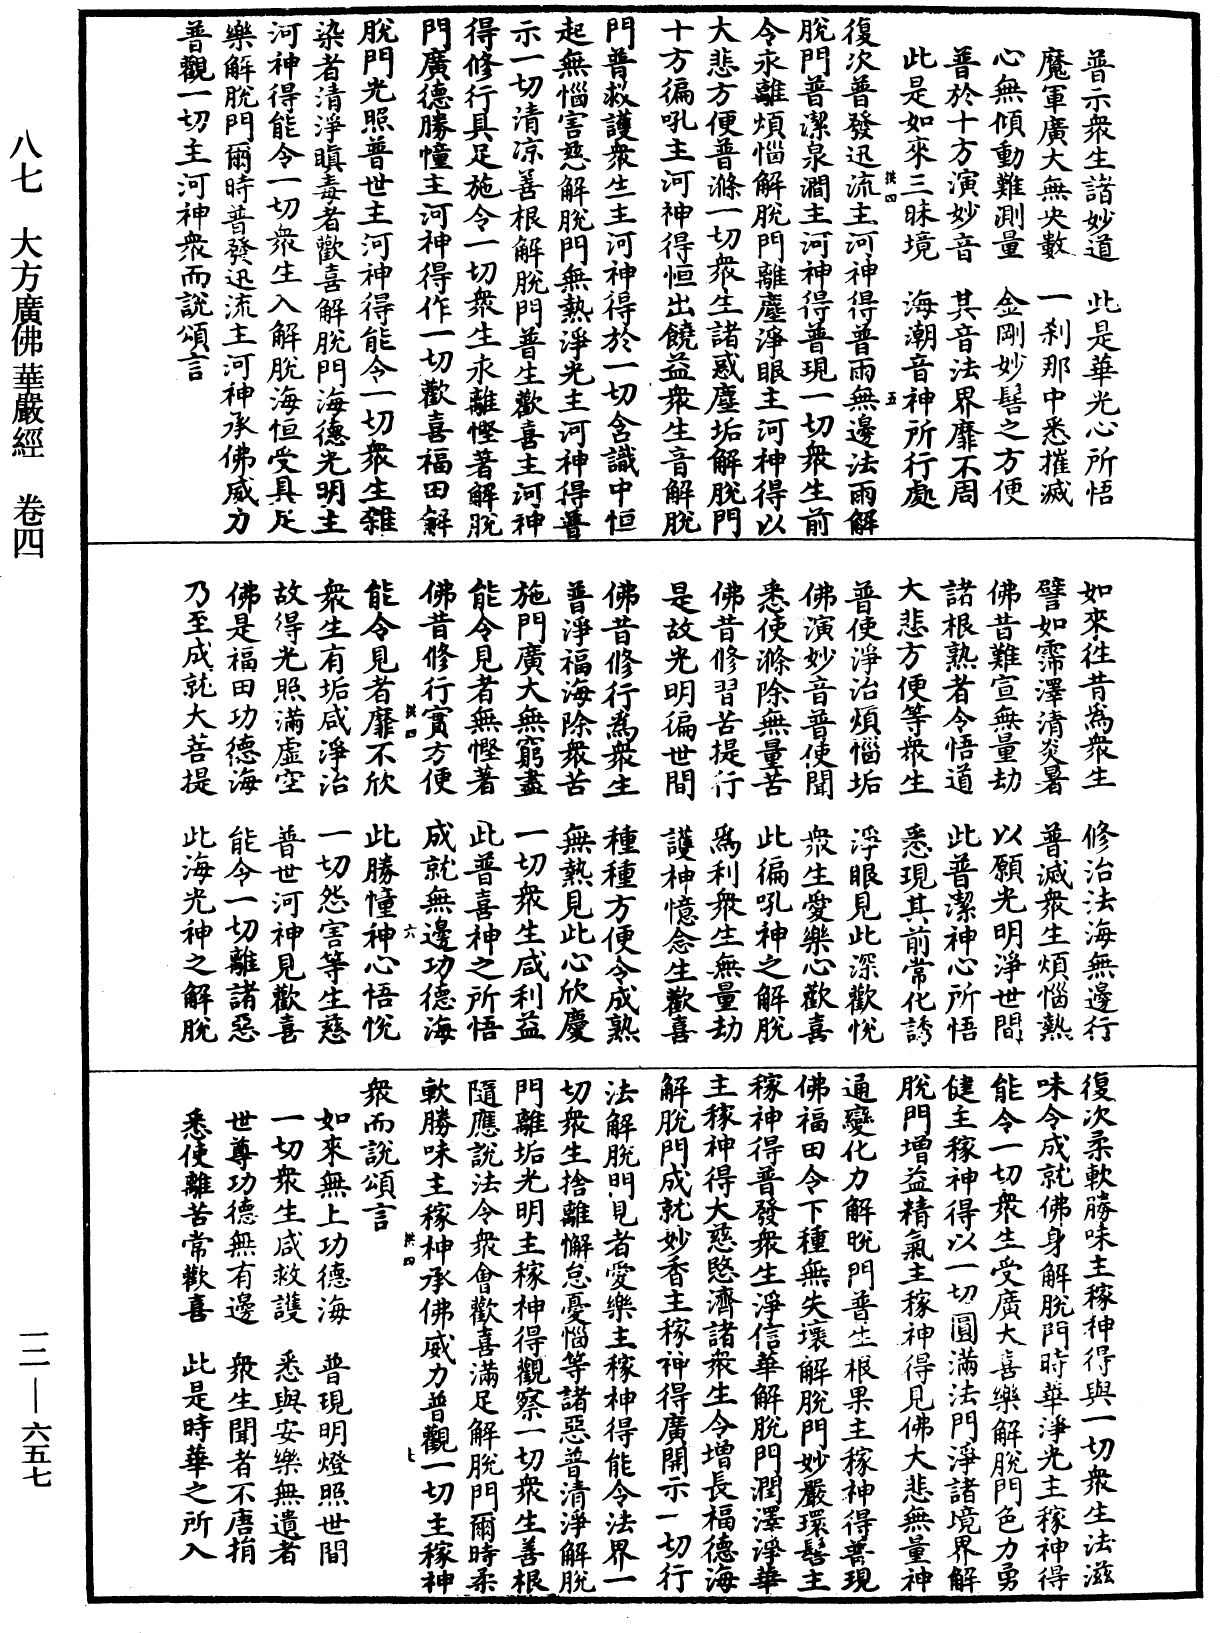 普示衆生諸妙道　此是華光心所悟
魔軍廣大無央數　一刹那中悉摧滅
心無傾動難測量　金剛妙髻之方便
普於十方演妙音　其音法界靡不周
此是如來三昧境　海潮音神所行處
復次普發迅流主河神得普雨無邊法雨解
脫門普潔泉澗主河神得普現一切衆生前
令永離煩惱解脫門離塵淨眼主河神得以
大悲方便普滌一切衆生諸惑塵垢解脫門
十方徧吼主河神得恒出饒益衆生音解脫
門普救護衆生主河神得於一切含識中恒
起無惱害慈解脫門無熱淨光主河神得普
示一切清凉善根解脫門普生歡喜主河神
得修行具足施令一切衆生永離慳著解脫
門廣德勝幢主河神得作一切歡喜福田解
脫門光照普世主河神得能令一切衆生雜
染者清淨瞋毒者歡喜解脫門海德光明主
河神得能令一切衆生入解脫海恒受具足
樂解脫門爾時普發迅流主河神承佛威力
普觀一切主河神衆而說頌言
如來往昔爲衆生　修治法海無邊行
譬如霈澤清炎暑　普滅衆生煩惱熱
佛昔難宣無量劫　以願光明淨世間
諸根熟者令悟道　此普潔神心所悟
大悲方便等衆生　悉現其前常化誘
普使淨治煩惱垢　淨眼見此深歡悅
佛演妙音普使聞　衆生愛樂心歡喜
悉使滌除無量苦　此徧吼神之解脫
佛昔修習菩提行　爲利衆生無量劫
是故光明徧世間　護神憶念生歡喜
佛昔修行爲衆生　種種方便令成熟
普淨福海除衆苦　無熱見此心欣慶
施門廣大無窮盡　一切衆生咸利益
能令見者無慳著　此普喜神之所悟
佛昔修行實方便　成就無邊功德海
能令見者靡不欣　此勝幢神心悟悅
衆生有垢咸淨治　一切怨害等生慈
故得光照滿虛空　普世河神見歡喜
佛是福田功德海　能令一切離諸惡
乃至成就大菩提　此海光神之解脫
復次柔軟勝味主稼神得與一切衆生法滋
味令成就佛身解脫門時華淨光主稼神得
能令一切衆生受廣大喜樂解脫門色力勇
健主稼神得以一切圓滿法門淨諸境界解
脫門增益精氣主稼神得見佛大悲無量神
通變化力解脫門普生根果主稼神得普現
佛福田令下種無失壞解脫門妙嚴環髻主
稼神得普發衆生淨信華解脫門潤澤淨華
主稼神得大慈愍濟諸衆生令增長福德海
解脫門成就妙香主稼神得廣開示一切行
法解脫門見者愛樂主稼神得能令法界一
切衆生捨離懈怠憂惱等諸惡普清淨解脫
門離垢光明主稼神得觀察一切衆生善根
隨應說法令衆會歡喜滿足解脫門爾時柔
軟勝味主稼神承佛威力普觀一切主稼神
衆而說頌言
如來無上功德海　普現明燈照世間
一切衆生咸救護　悉與安樂無遺者
世尊功德無有邊　衆生聞者不唐捐
悉使離苦常歡喜　此是時華之所入
洪四　五
洪四　六
洪四　七
八七　大方廣佛華嚴經　卷四
一二—六五七